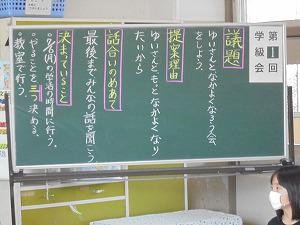 第1回
学級会
議題
ゆいさんとなかよくなろう会
をしよう。
提案理由
ゆいさんともっとなかよくなり
たいから
話合いのめあて
最後までみんなの話を聞こう
決まっていること
(月)の学活の時間に行う。
・やることを三つ決める。
・教室で行う。